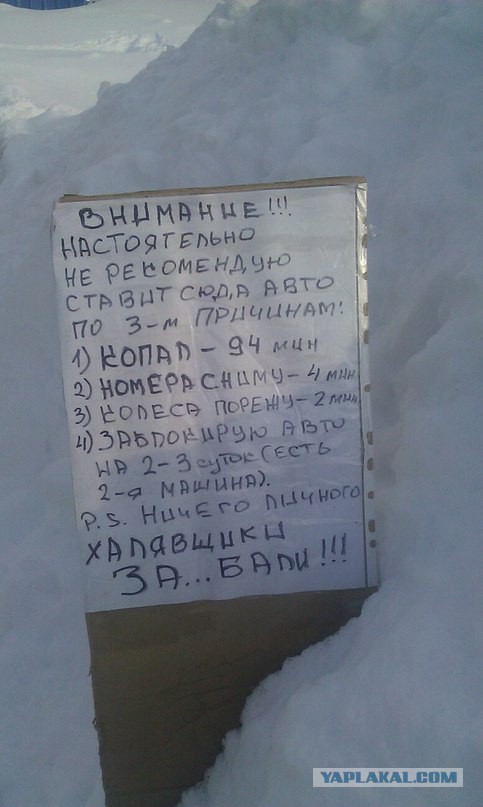 ВНИМАНИЕ!!!
НАСТОЯТЕЛЬНО
НЕ РЕКОМЕНДУЮ
СТАВИТ СЮДА АВТО
ПО 3-м ПРИЧИНАМ:
1) КОПАЛ - 94 мин
2) НОМЕРА СНИМУ - 4 мин
3) КОЛЕСА ПОРЕЖУ - 2 мин
4) ЗАБЛОКИРУЮ АВТО
НА 2-3 суток (ЕСТЬ
2-я МАШИНА).
P.S. НИЧЕГО ЛИЧНОГО
ХАЛЯВЩИКИ
ЗА...БАЛИ!!!
YAPLAKAL.COM